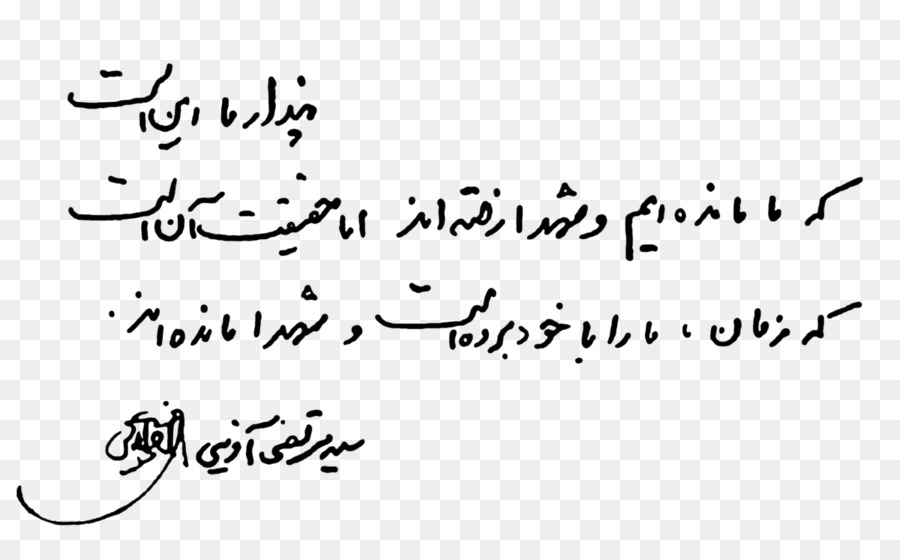 پندار ما این است
که ما مانده ایم و شهدا رفته اند اما حقیقت آن است
که زمان، ما را با خود برده است و شهدا مانده اند.
سید مرتضی آوینی